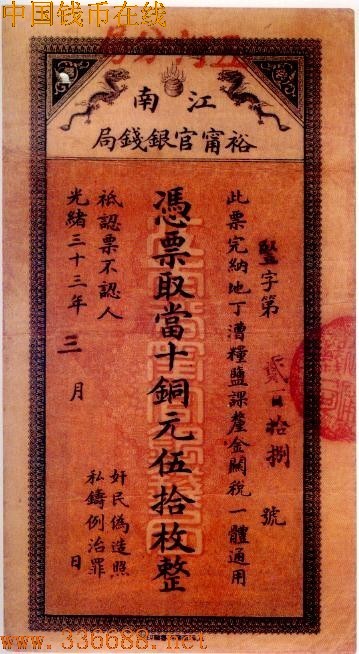 中国钱币在线
江南
裕甯官銀錢局
此票完納地丁漕糧鹽課釐金關稅一體通用
字第
拾捌
號
憑票取當十銅元伍拾枚整
祗認票不認人
光緒三十三年三月 日
奸民偽造照
私鑄例治罪
www.336688.net